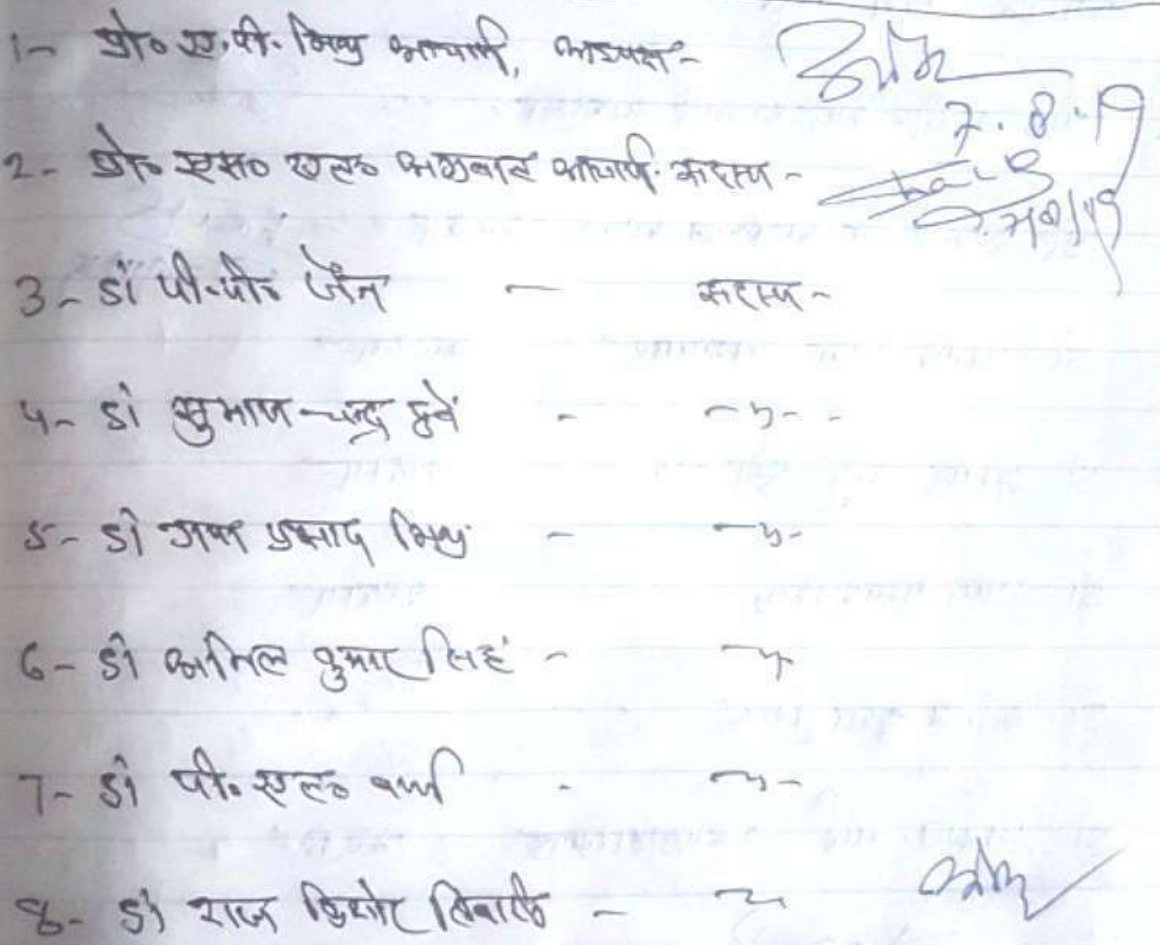 1- प्रो० ए.पी. मिश्र आचार्य, अध्यक्ष-
7.8.19
2- प्रो० एस० एल० अग्रवाल आचार्य. सदस्य -
7/8/19
3- डॉ पी.पी. जैन - सदस्य -
4- डॉ सुभाष चन्द्र दुवे - -"- -
5- डॉ प्रसाद मिश्र - -"-
6- डॉ अनिल कुमार सिहं - -"-
7- डॉ पी. एल० वर्मा - -"-
8- डॉ राज किशोर तिवारी - "